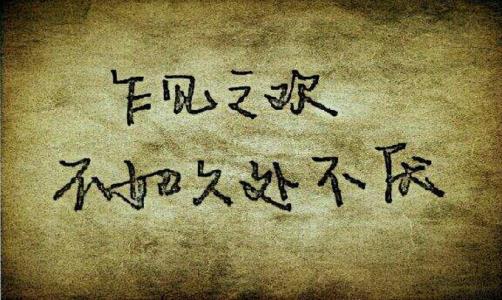 乍见之欢
不如久处不厌